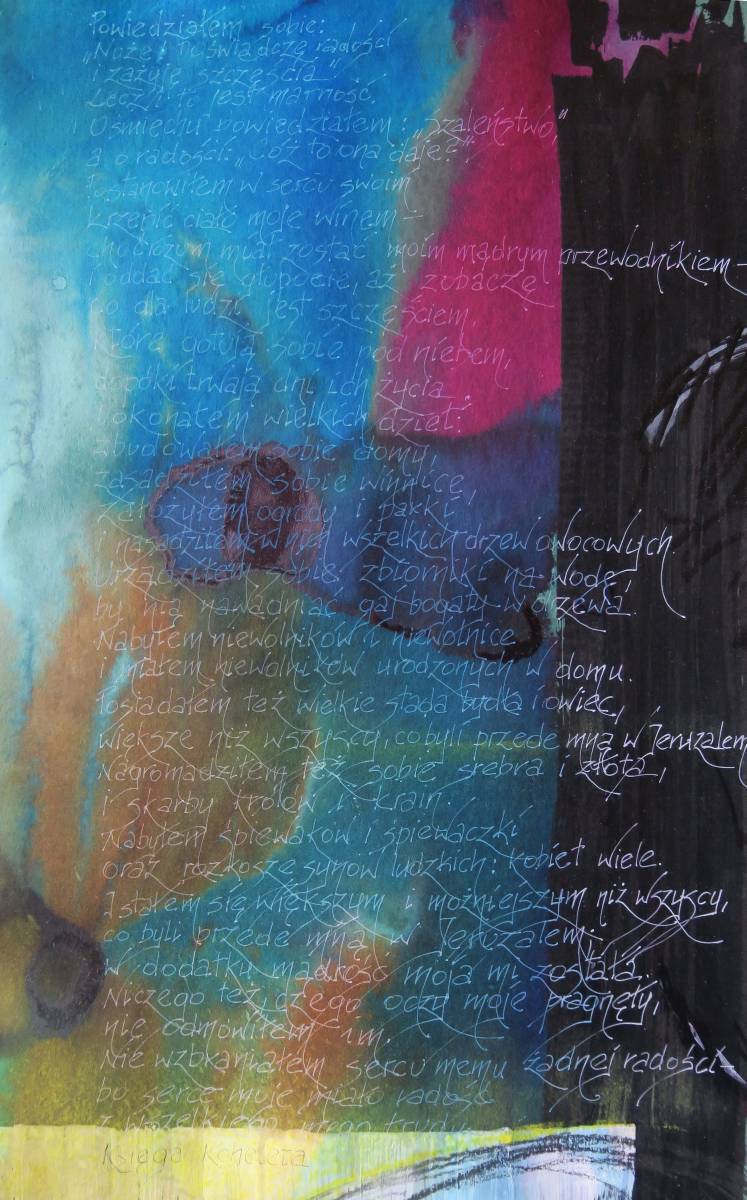 Powiedziałem sobie:
„Nuże! Doświadczę radości
i zażyję szczęścia”
Lecz i to jest marność.
O śmiechu powiedziałem: „szaleństwo,”
a o radości: „Cóż to ona daje?”
Postanowiłem w sercu swoim
krzepić ciało moje winem –
chociaż rozum miał zostać moim mądrym przewodnikiem –
i oddać się głupocie, aż zobaczę,
co dla ludzi jest szczęściem,
które gotują sobie pod niebem,
dopóki trwają dni ich życia.
Dokonałem wielkich dzieł:
zbudowałem sobie domy,
zasadziłem sobie winnice,
założyłem ogrody i parki
i nasadziłem w nich wszelkich drzew owocowych.
Urządziłem sobie zbiorniki na wodę,
by nią nawadniać gaj bogaty w drzewa.
Nabyłem niewolników i niewolnice
i miałem niewolników urodzonych w domu.
Posiadałem też wielkie stada bydła i owiec,
większe niż wszyscy, co byli przede mną w Jeruzalem
Nagromadziłem też sobie srebra i złota,
i skarby królów i krain.
Nabyłem śpiewaków i śpiewaczki
oraz rozkosze synów ludzkich: kobiet wiele.
I stałem się większym i możniejszym niż wszyscy,
co byli przede mną w Jeruzalem;
w dodatku mądrość moja mi została.
Niczego też, czego oczy moje pragnęły,
nie odmówiłem im.
Nie wzbraniałem sercu memu żadnej radości –
bo serce moje miało radość
z wszelkiego mego trudu
Księga Koheleta